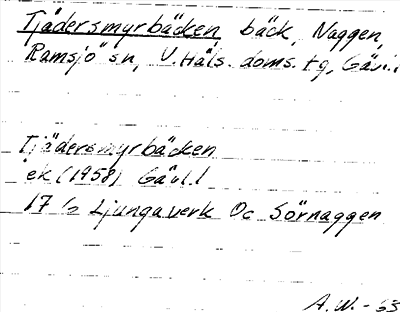 Tjädersmyrbäcken, bäck, Naggen,
Ramsjö sn, V. Häls. doms. tg, Gävl.l
Tjädersmyrbäcken
ek (1958) Gävl.l
17 Ljungaverk Oc Sörnaggen
A.W.-63